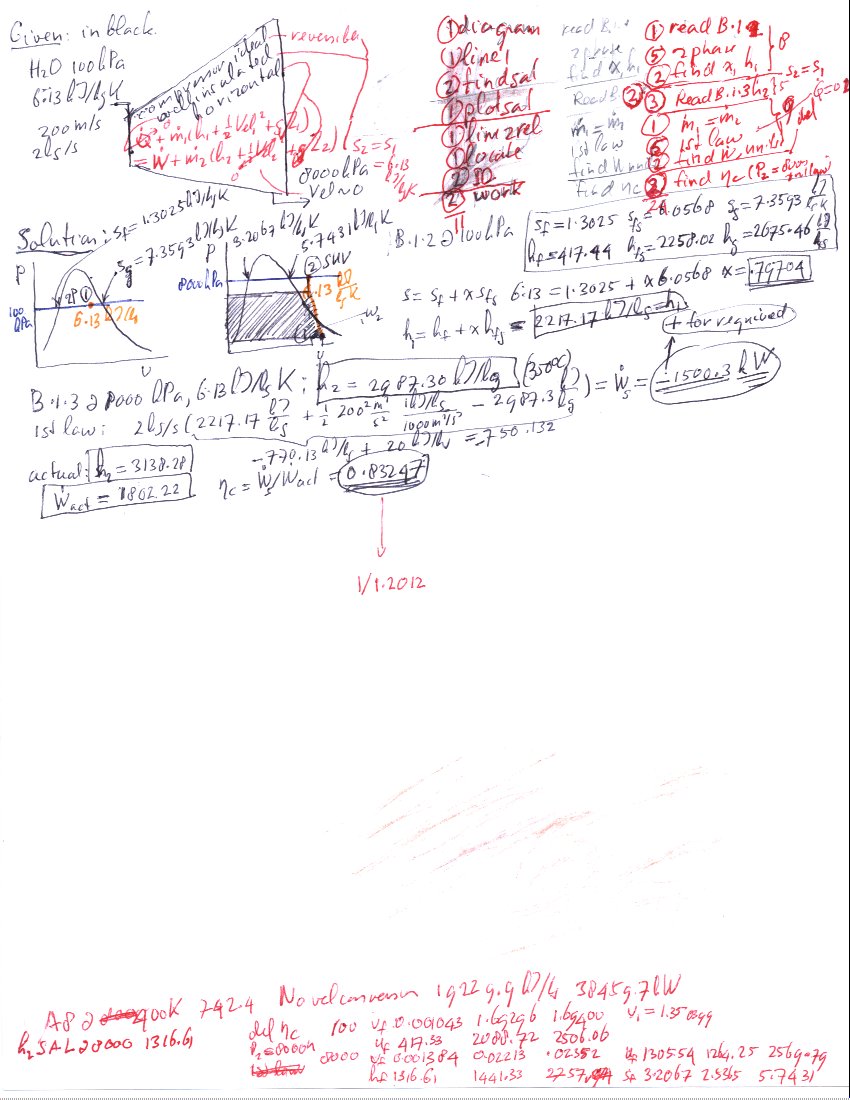 Given: in black.
H2O 100kPa
6.13 kJ/kgK
200 m/s
2kg/s
compressor ideal
well insulated
horizontal
reversible
Q̇ + ṁ1(h1 + ½Vel1² + gZ1)
= Ẇ + ṁ2(h2 + ½Vel2² + gZ2)
s2 = s1 = 6.13 kJ/kgK
8000kPa
Vel≈0
① diagram
① line1
② findsat
① plotsat
① lim2rel
① locate
② work
read B.1.2
2 phase
find x, h1
ṁ1 = ṁ2
1st law
find ηc
① read B.1.2
⑤ 2 phase
② find x, h1
8
s2 = s1
③ Read B.1.3 (h2) 5
① ṁ1 = ṁ2
⑤ 1st law
② find Ẇ, units
② find ηc (P2 = 8000
Solution:
sf = 1.3025 kJ/kgK
sg = 7.3593 kJ/kgK
P
100 kPa
2P ①
6.13 kJ/kg
υ
3.2067 kJ/kgK
5.7431 kJ/kgK
P
8000kPa
② SHV
6.13 kJ/kgK
υ
B.1.2 @ 100 kPa
sf = 1.3025 sfg = 6.0568 sg = 7.3593 kJ/kgK
hf = 417.44 hfg = 2258.02 hg = 2675.46 kJ/kg
s = sf + x sfg 6.13 = 1.3025 + x 6.0568 x = .79704
h1 = hf + x hfg = 2217.17 kJ/kg = h1
+ for required
B.1.3 @ 8000 kPa, 6.13 kJ/kgK: h2 = 2987.30 kJ/kg (350°C)
1st law: 2kg/s (2217.17 kJ/kg + ½ 200² m²/s² 1kJ/kg / 1000m²/s² - 2987.3 kJ/kg) = Ẇs = -1500.3 kW
-770.13 kJ/kg + 20 kJ/kg = -750.132
actual: h2 = 3138.28
Ẇact = 1802.22
ηc = Ẇs/Ẇact = 0.83247
1/1.2012
A8 @ 400K 742.4 No vel conversion 19229.9 kJ/kg 38459.7 kW
h2 SAL @ 8000 1316.61
del ηc 100 υf 0.001043 1.69296 1.69400 υ1 = 1.350899
P2=8000 uf 417.33 2088.72 2506.06
8000 υf 0.001384 0.02213 .02352 uf 1305.54 1264.25 2569.79
hf 1316.61 1441.33 sf 3.2067 2.5365 5.7431